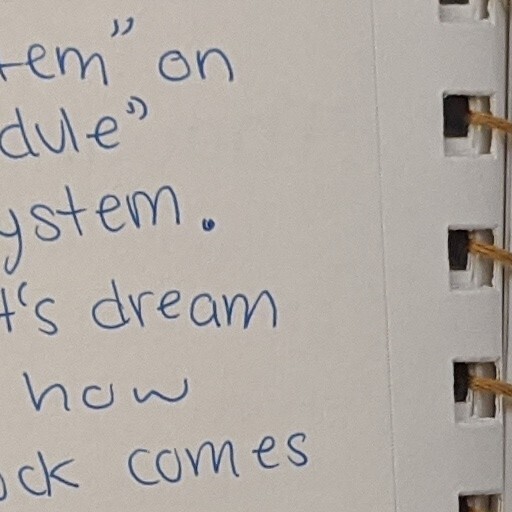 tem" on
dule"
ystem.
t's dream
how
ock comes